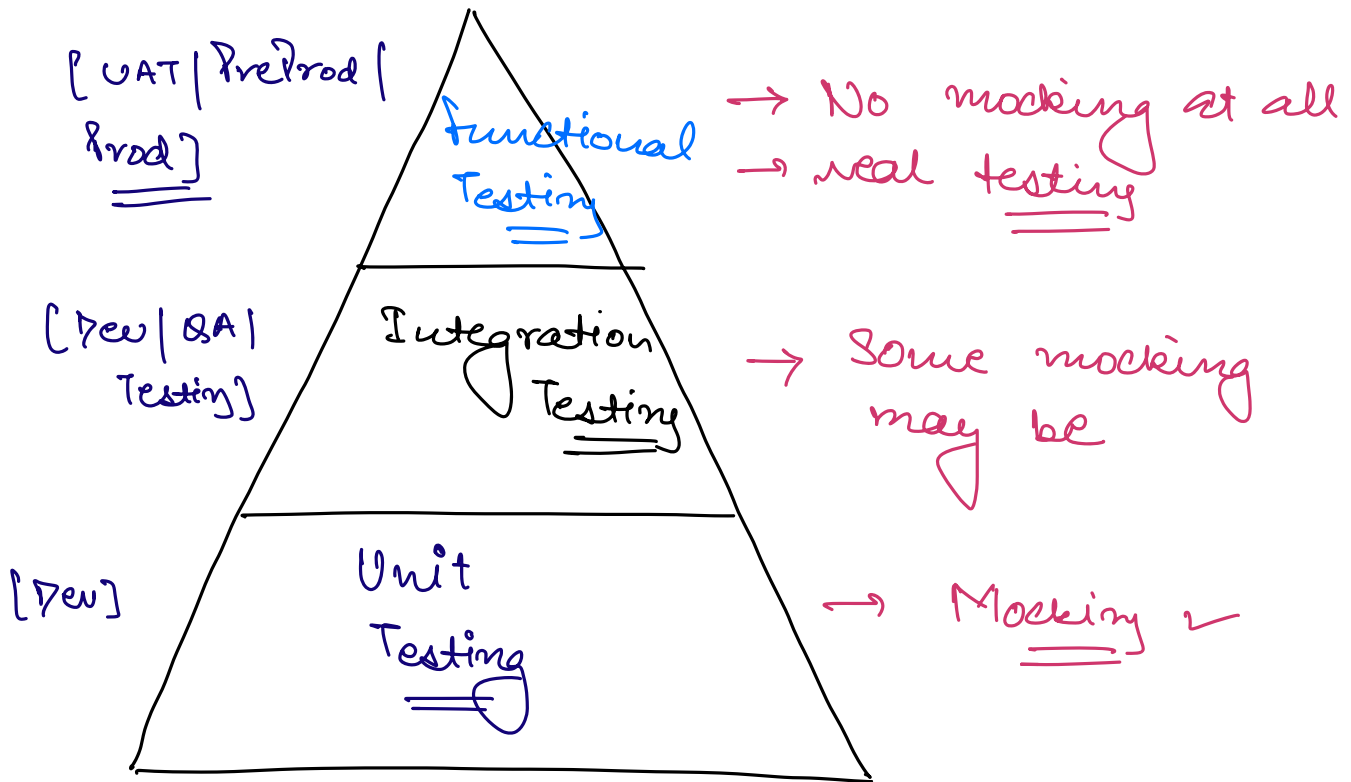 [UAT | PreProd |
Prod]
functional
Testing
→ No mocking at all
→ real testing
[Dev | QA |
Testing]
Integration
Testing
→ Some mocking
may be
[Dev]
Unit
Testing
→ Mocking ✓